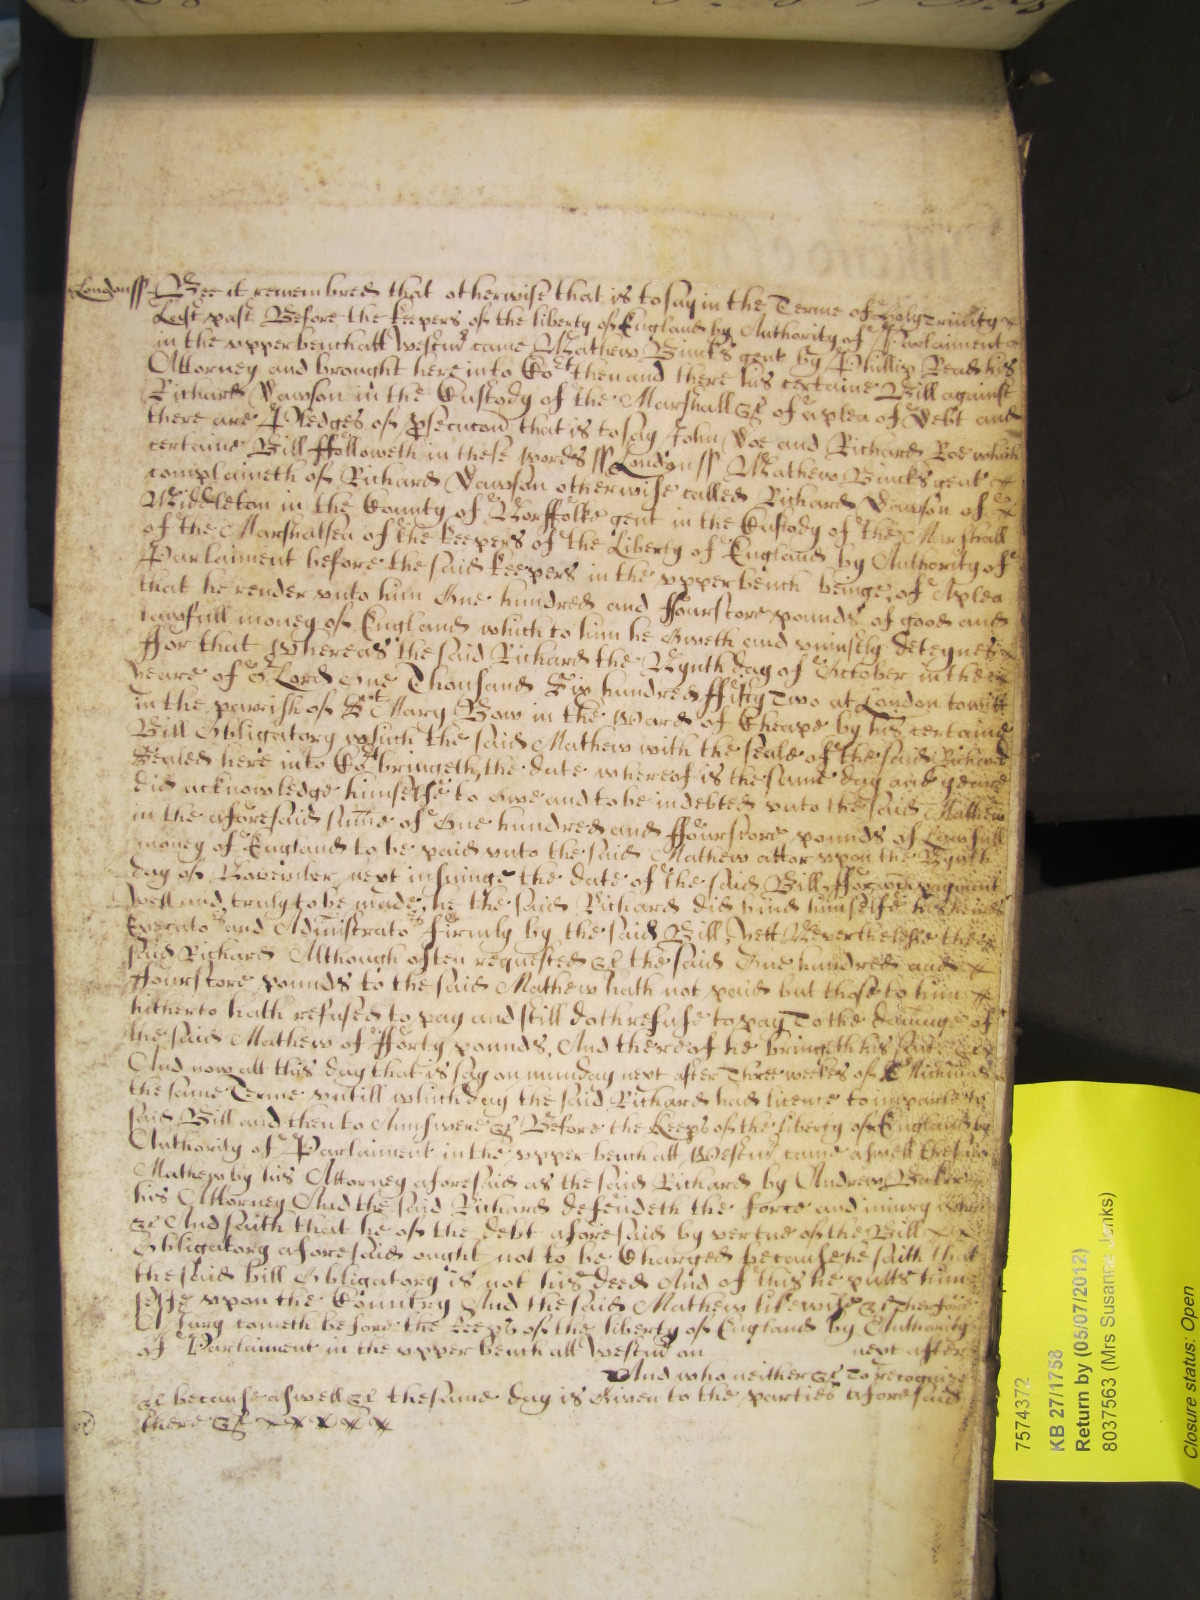 Londonss Bee it remembred that otherwise that is to say in the Terme of Holy Trinity
Last past Before the keepers of the liberty of England by Authority of Parlament
in the upper bench att Westmr came Mathew Bincks gent by Phillip Read his
Attorney and brought here into Cort then and there his certaine Bill against
Richard Dawson in the Custody of the Marshall &c of a plea of Debt and
there are Pledges of psecucon that is to say John Doe and Richard Roe which
certaine Bill ffolloweth in these words ss Londonss Mathew Bincks gent
complaineth of Richard Dawson otherwise called Richard Dawson of
Middleton in the County of Norffolke gent in the Custody of the Marshall
of the Marshalsea of the keepers of the Liberty of England by Authority of
Parlament before the said keepers in the upper bench beinge of A plea
that he render unto him One hundred and ffourscore pounds of good and
lawfull money of England which to him he Oweth and uniustly deteynes
ffor that Whereas the said Richard the Nynth day of October in the
yeare of or Lord One Thousand Six hundred ffifty Two at London to witt
in the parrish of St Mary Bow in the Ward of Cheape by his certaine
Bill Obligatory which the said Mathew with the seale of the said Richard
Sealed here into Cort bringeth the date whereof is the same day and yeare
did acknowledge himselfe to Owe and to be indebted unto the said Mathew
in the aforesaid sume of One hundred and ffourscore pounds of Lawfull
money of England to be paid unto the said Mathew att or upon the Nynth
day of November next insuinge the date of the said Bill ffor wch payment
well and truly to be made he the said Richard did bind himselfe his heires
Executors and Administrators firmly by the said Bill, Yett Neverthelesse the
said Richard Although often requested &c the said One hundred and
ffourscore pounds to the said Mathew hath not paid but those to him
hitherto hath refused to pay and still doth refuse to pay To the damage of
the said Mathew of fforty pounds, And thereof he bringeth his suit &c
And now att this day that is say on munday next after Three weekes of St Michael in
the same Terme untill which day the said Richard had licence to imparle to
said Bill and then to Answere &c Before the keeps of the liberty of England by
Authority of Parlament in the upper bench att Westmr came aswell the said
Mathew by his Attorney aforesaid as the said Richard by Andrew Baker
his Attorney And the said Richard defendeth the force and iniury when
&c And saith that he of the debt aforesaid by vertue of the Bill
Obligatory aforesaid ought not to be Charged because he saith that
the said bill Obligatory is not his deed And of this he putts him
selfe upon the Country And the said Mathew likewise &c Therfore
A Iury cometh before the keeps of the liberty of England by Authority
of Parlament in the upper bench att Westmr on next after
And who neither &c To recognize
&c because aswell &c the same day is Given to the parties aforesaid
there &c x x x x x
7574372
KB 27/1758
Return by (05/07/2012)
8037563 (Mrs Susanna Jenks)
Closure status: Open